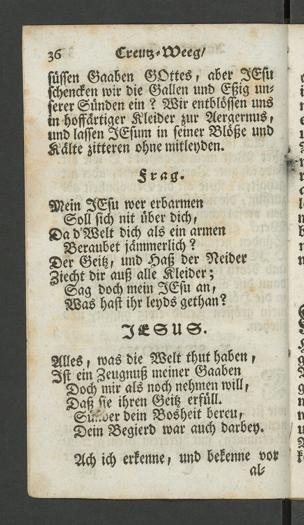 36 Creutz-Weeg/
süssen Gaaben GOttes, aber JEsu
schencken wir die Gallen und Eßig un-
serer Sünden ein? Wir entblössen uns
in hoffärtiger Kleider zur Aergernus,
und lassen JEsum in seiner Blöße und
Kälte zitteren ohne mitleyden.
Frag.
Mein JEsu wer erbarmen
Soll sich nit über dich,
Da d'Welt dich als ein armen
Beraubet jämmerlich?
Der Geitz, und Haß der Neider
Ziecht dir auß alle Kleider;
Sag doch mein JEsu an,
Was hast ihr leyds gethan?
JESUS.
Alles, was die Welt thut haben,
Ist ein Zeugnuß meiner Gaaben
Doch mir als noch nehmen will,
Daß sie ihren Geitz erfüll.
Sünder dein Bosheit bereu,
Dein Begierd war auch darbey.
Ach ich erkenne, und bekenne vor
al-